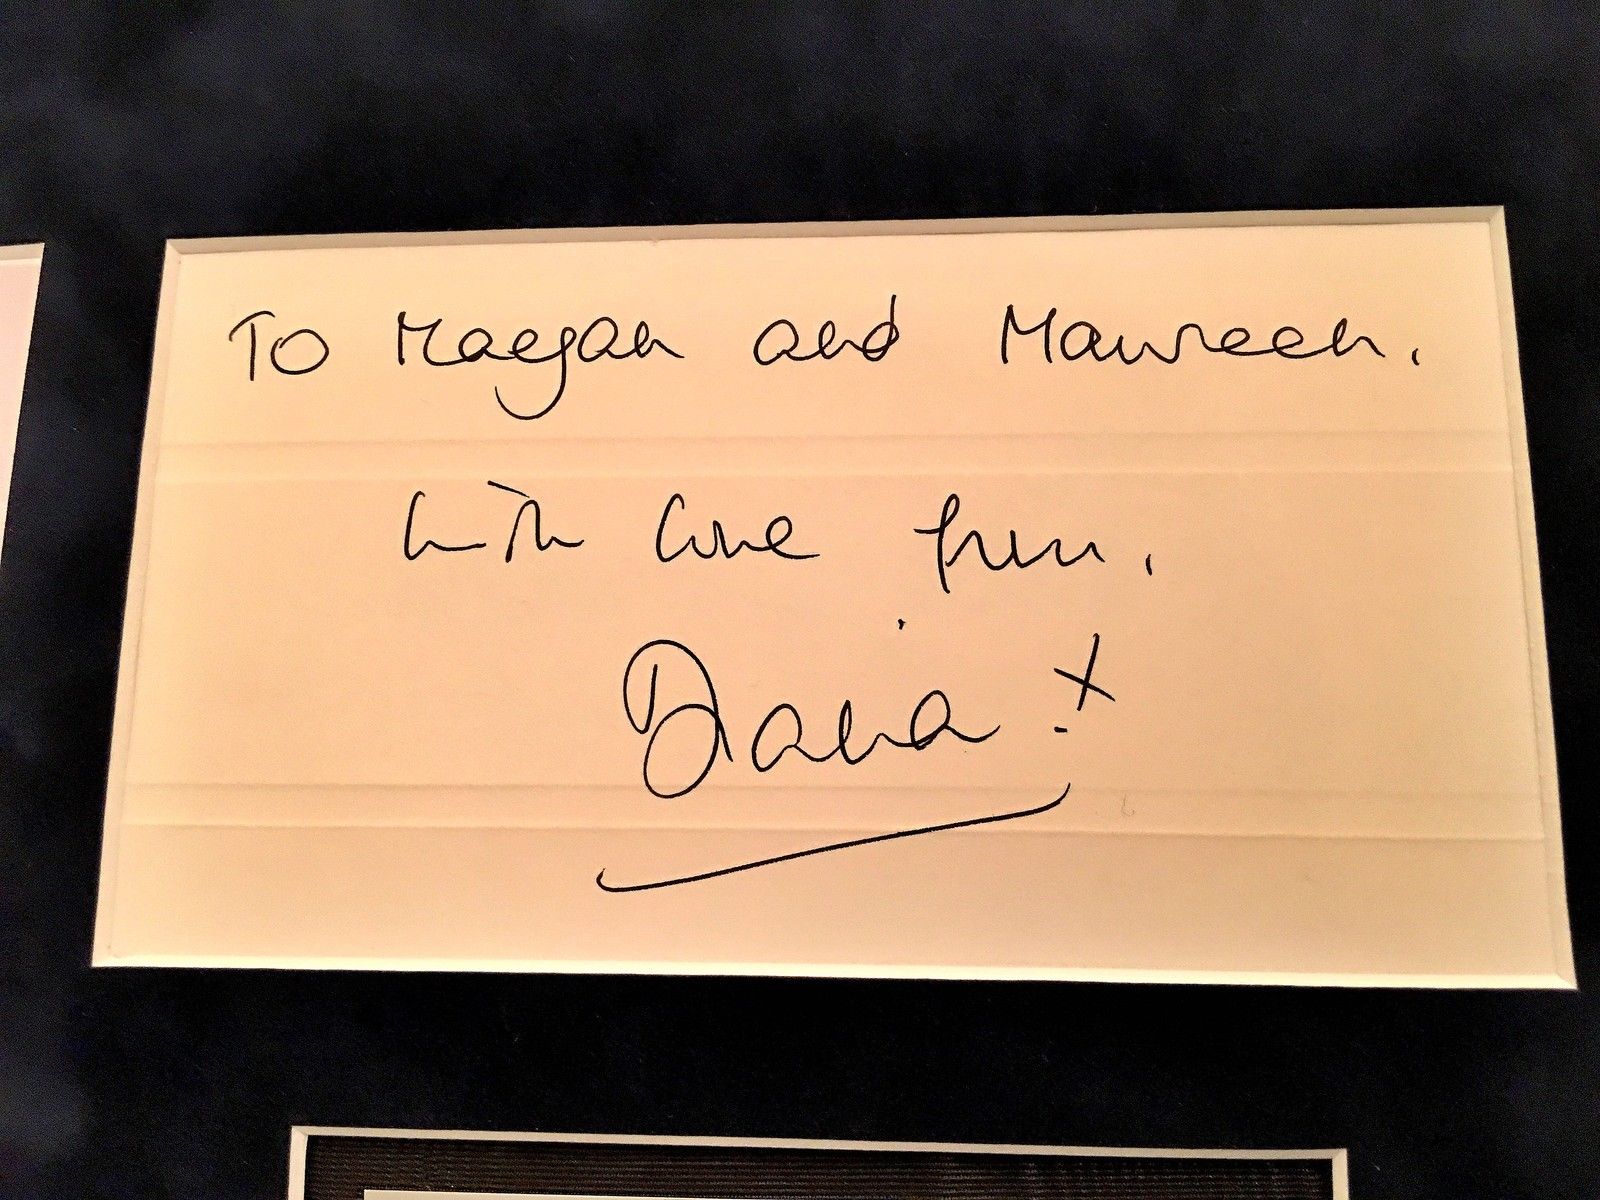 To Maegan and Maureen.
with love from,
Diana. x